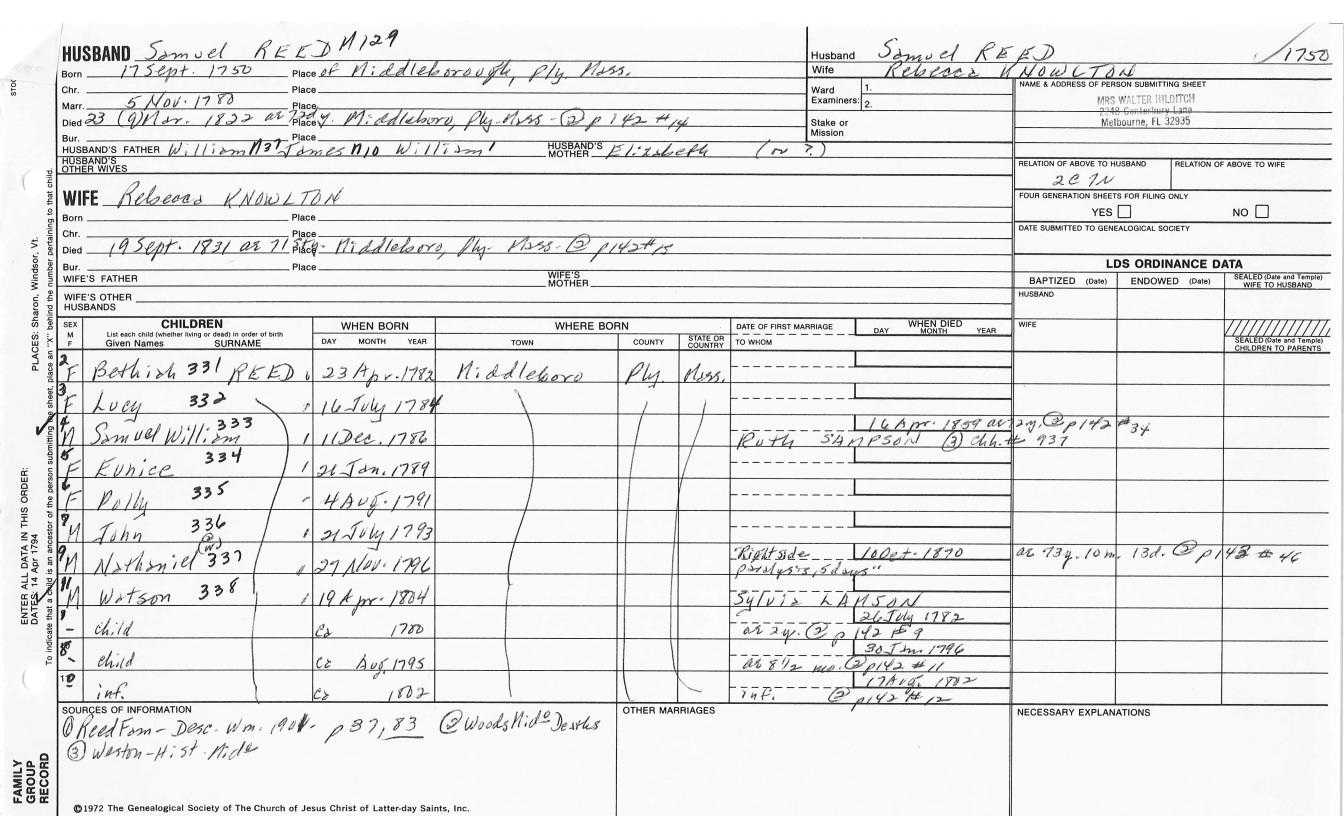 HUSBAND Samuel REED M129
Born 17 Sept. 1750 Place of Middleborough, Ply Mass.
Chr. Place
Marr. 5 Nov. 1780 Place
Died 23 (9) Mar. 1822 ae 72y. Place Middleboro, Ply. Mass - ② p142 #14
Bur. Place
HUSBAND'S FATHER William M37 James M10 William¹ HUSBAND'S MOTHER Elizabeth (or ?)
HUSBAND'S OTHER WIVES
Husband Samuel REED 1750
Wife Rebecca KNOWLTON
Ward Examiners: 1. 2.
Stake or Mission
NAME & ADDRESS OF PERSON SUBMITTING SHEET
MRS WALTER HILDITCH
2248 Canterbury Lane
Melbourne, FL 32935
RELATION OF ABOVE TO HUSBAND RELATION OF ABOVE TO WIFE
2C 7N
FOUR GENERATION SHEETS FOR FILING ONLY
YES NO
DATE SUBMITTED TO GENEALOGICAL SOCIETY
WIFE Rebecca KNOWLTON
Born Place
Chr. Place
Died 19 Sept. 1831 ae 71 Place Middleboro, Ply. Mass - ② p142 #15
Bur. Place
WIFE'S FATHER WIFE'S MOTHER
WIFE'S OTHER HUSBANDS
LDS ORDINANCE DATA
BAPTIZED (Date) ENDOWED (Date) SEALED (Date and Temple) WIFE TO HUSBAND
HUSBAND
WIFE
SEALED (Date and Temple) CHILDREN TO PARENTS
SEX M F CHILDREN WHEN BORN WHERE BORN DATE OF FIRST MARRIAGE WHEN DIED
List each child (whether living or dead) in order of birth
Given Names SURNAME DAY MONTH YEAR TOWN COUNTY STATE OR COUNTRY TO WHOM DAY MONTH YEAR
2 F Bethiah 331 REED 23 Apr. 1782 Middleboro Ply. Mass.
3 F Lucy 332 16 July 1784
4 M Samuel William 333 11 Dec. 1786 16 Apr. 1859 ae 72y. ② p142 #34
Ruth SAMPSON ③ Chh. # 937
5 F Eunice 334 26 Jan. 1789
6 F Polly 335 4 Aug. 1791
7 M John 336 21 July 1793
9 M Nathaniel (or W) 337 27 Nov. 1796 "Right side 10 Oct. 1870 ae 73y. 10m. 13d. ② p143 #46
paralysis, 5 days"
11 M Watson 338 19 Apr. 1804 Sylvia LAMSON
1 - child Ca 1780 26 July 1782
ae 2y. ② p142 #9
8 - child Ca Aug. 1795 30 Jan. 1796
ae 8½ mo. ② p142 #11
10 inf. Ca 1802 17 Aug. 1802
inf. ② p142 #12
SOURCES OF INFORMATION OTHER MARRIAGES NECESSARY EXPLANATIONS
① Reed Fam - Desc. Wm. 1901 - p 37, 83 ② Woods Midº Deaths
③ Weston - Hist. Midº
©1972 The Genealogical Society of The Church of Jesus Christ of Latter-day Saints, Inc.
FAMILY GROUP RECORD
ENTER ALL DATA IN THIS ORDER:
DATES: 14 Apr 1794
PLACES: Sharon, Windsor, Vt.
To indicate that a child is an ancestor of the person submitting the sheet, place an "X" behind the number pertaining to that child.